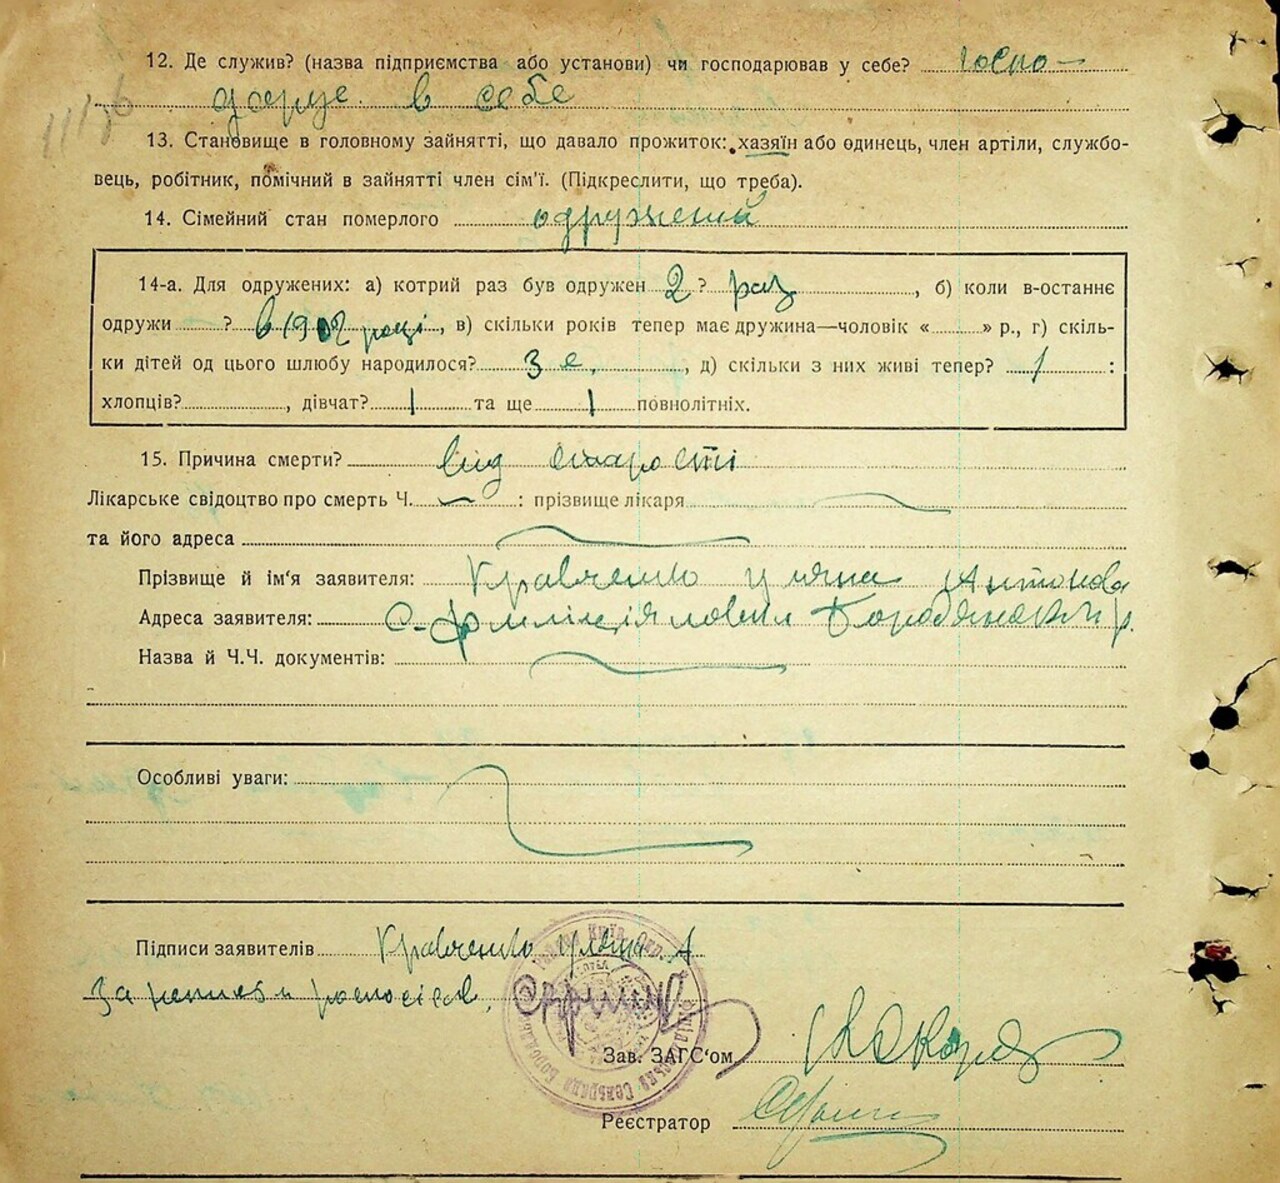 12. Де служив? (назва підприємства або установи) чи господарював у себе? госпо-
дарує в себе
13. Становище в головному зайнятті, що давало прожиток: хазяїн або одинець, член артіли, службо-
вець, робітник, помічний в зайнятті член сім'ї. (Підкреслити, що треба).
14. Сімейний стан померлого одружений
14-а. Для одружених: а) котрий раз був одружен 2? раз, б) коли в-останнє
одружи ? в 1902 році, в) скільки років тепер має дружина—чоловік « » р., г) скіль-
ки дітей од цього шлюбу народилося? 3 е, д) скільки з них живі тепер? 1 :
хлопців? , дівчат? 1 та ще 1 повнолітніх.
15. Причина смерти? від старости
Лікарське свідоцтво про смерть Ч. : прізвище лікаря
та його адреса
Прізвище й ім'я заявителя: Кравченко Уляна Антонова
Адреса заявителя: с.
Назва й Ч.Ч. документів:
Особливі уваги:
Підписи заявителів Кравченко Уляна А
За
Зав. ЗАГС'ом
Реєстратор